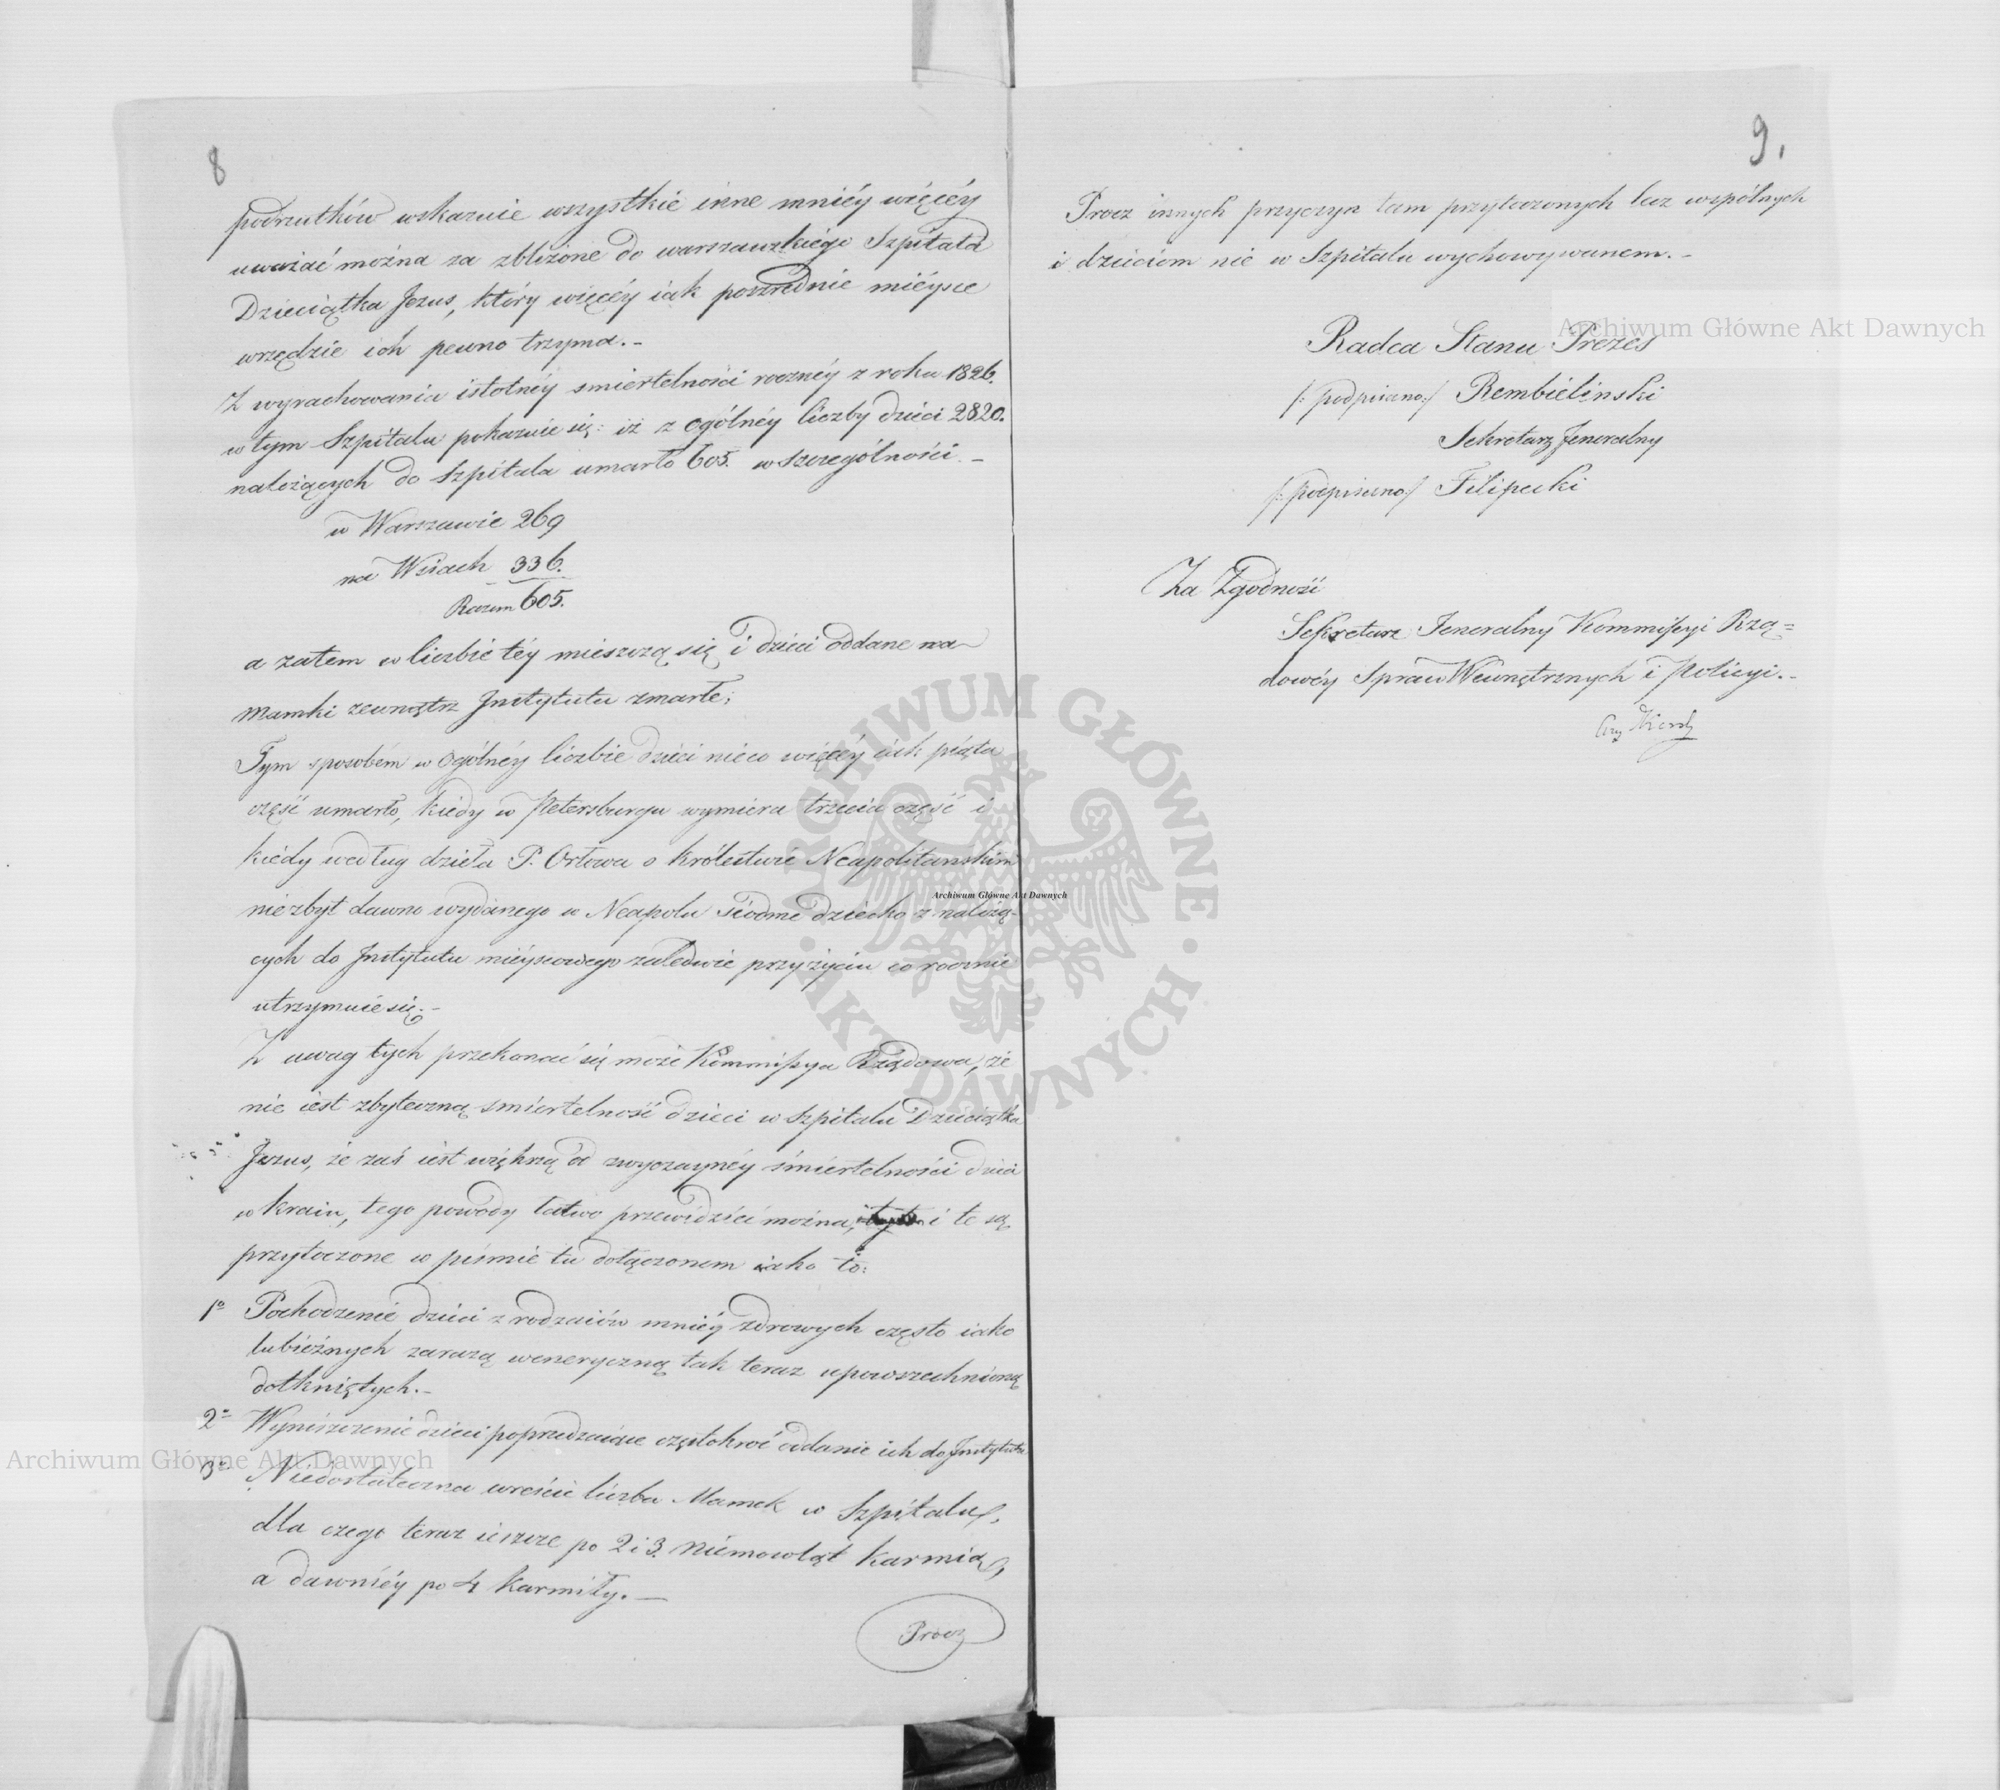 8
podrzutków wskazuie wszystkie inne mniéy więcéy
uważać można za zbliżone do warszawskiégo Szpitala
Dzieciątka Jezus, który więcéy iak pośrednie miéysce
wrzędzie ich pewno trzyma.-
Z wyrachowania istotnéy smiertelności rocznéy z roku 1826.
w tym Szpitalu pokazuie się: iż z ogólnéy liczby dzieci 2820.
należących do Szpitala umarło 605. w szczególności. -
w Warszawie 269
na Wsiach 336.
Razem 605.
a zatem w liczbie téy mieszczą się i dzieci oddane na
Mamki zewnątrz Jnstytutu zmarłe;
Tym sposobém w ogólnéy liczbie dzieci nieco więcéy iak piąta
część umarło, kiedy w Petersburgu wymiera trzecia część i
kiedy według dzieła P. Orłowa o Królestwie Neapolitańskim
niezbyt dawno wydanego w Neapolu siódme dziecko z należą-
cych do Jnstytutu miéyscowego zaledwie przy życiu co rocznie
utrzymuie się.-
Z uwag tych przekonać się może Kommissya Rządowa, że
nie iest zbyteczną smiertelność dzieci w Szpitalu Dzieciątka
Jezus, że zaś iest większą od zwyczaynéy śmiertelności dzieci
w kraiu, tego powody łatwo przewidzieć można, i te są
przytoczone w piśmie tu dołączonem iako to:
1o Pochodzenie dzieci z rodzaiów mniéy zdrowych często iako
lubieżnych zarazą weneryczną tak teraz upowszechnioną
dotkniętych.-
2o Wyniszczenie dzieci poprzedzaiące częstokroć oddanie ich do Jnstytutu
3o Niedostateczna wreście liczba Mamek w Szpitalu,
dla czego teraz ieszcze po 2 i 3. niemowląt karmią,
a dawniéy po 4 karmiły.-
Procz
9.
Procz innych przyczyn tam przytoczonych lecz wspólnych
i dzieciom nie w Szpitalu wychowywanem.-
Radca Stanu Prezes
/: podpisano:/ Rembieliński
Sekretarz Jeneralny
/: podpisano/ Filipecki
Za Zgodność
Sekretarz Jeneralny Kommissyi Rzą=
dowéy Spraw Wewnętrznych i Policyi.-
Archiwum Główne Akt Dawnych
Archiwum Główne Akt Dawnych
Archiwum Główne Akt Dawnych
ARCHIWUM GŁÓWNE · AKT DAWNYCH ·